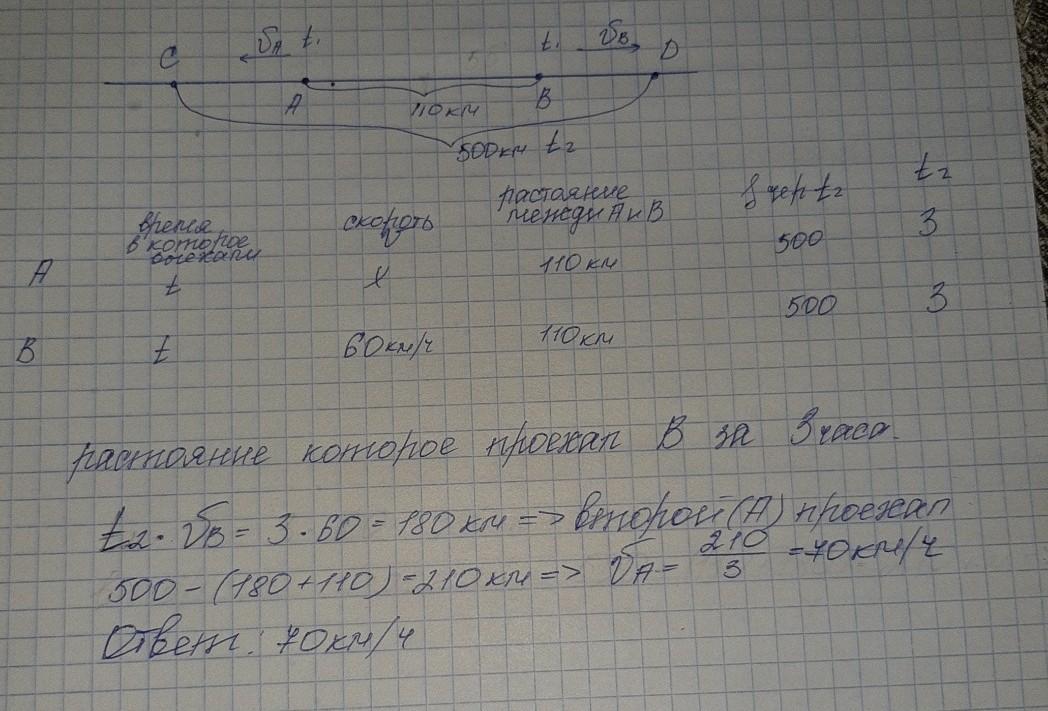 C V_A t₁ t₁ V_B D
A 110км B
500км t₂
время в которое выехали скорость растояние между А и В S чер t₂ t₂
A t x 110км 500 3
B t 60км/ч 110км 500 3
растояние которое проехал В за 3 часа.
t₂ · V_B = 3 · 60 = 180 км => второй (А) проехал
500 - (180 + 110) = 210 км => V_A = 210/3 = 70км/ч
Ответ: 70км/ч